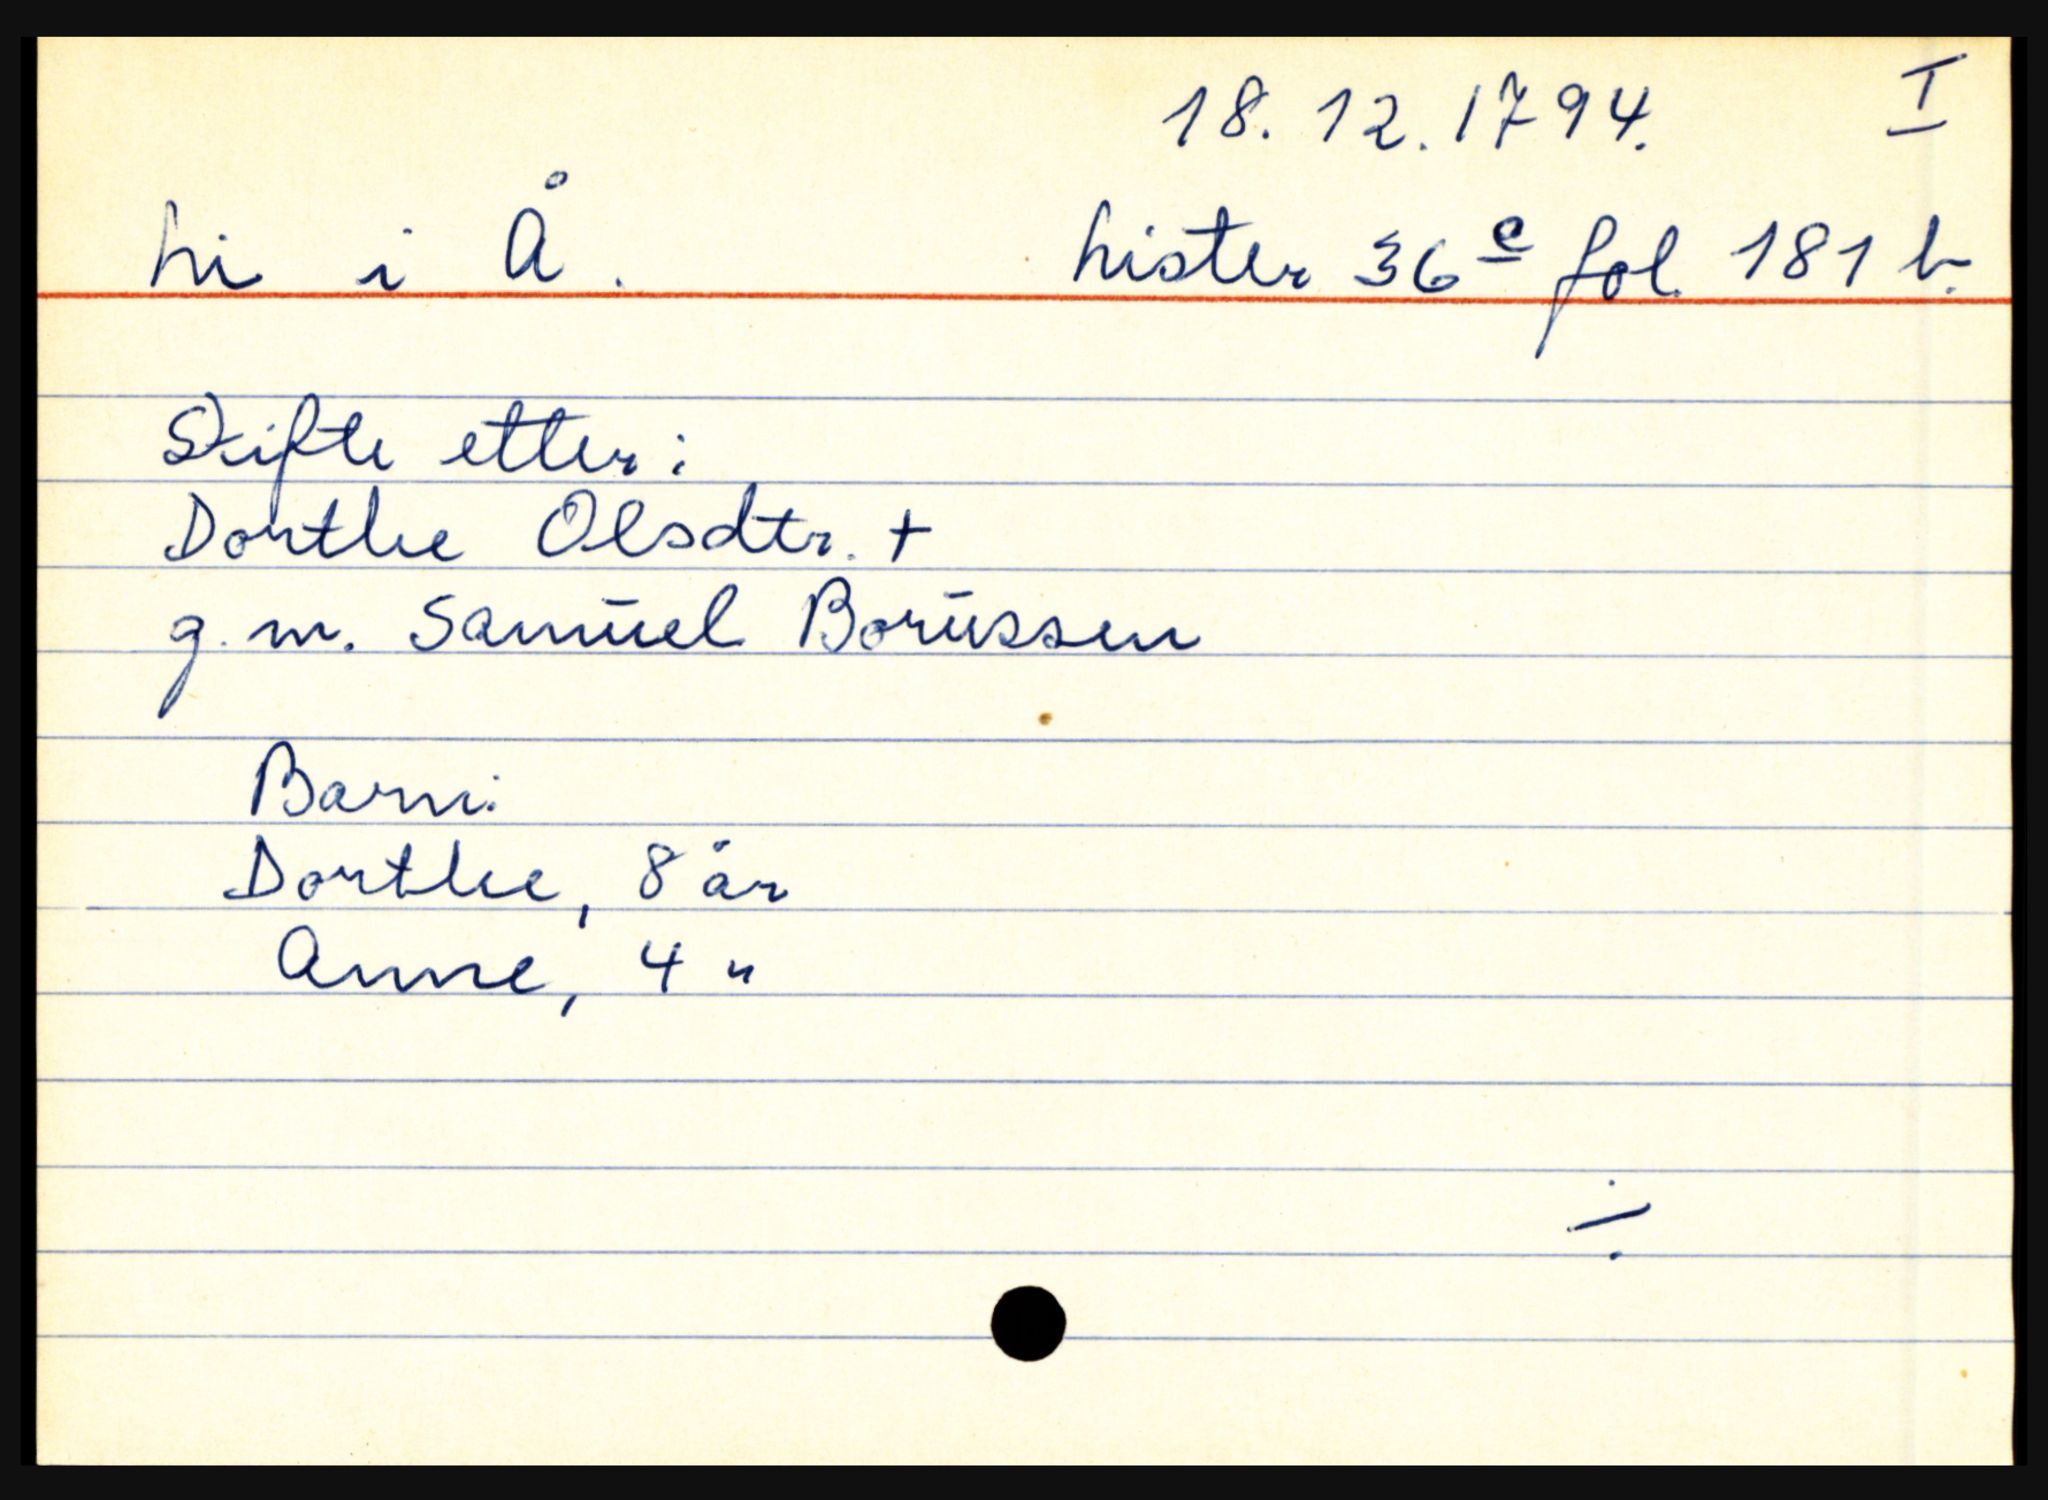 18. 12. 1794. I
Li i Å. Lister 36 c fol. 181 b.
Skifte etter:
Dorthe Olsdtr. +
g. m. Samuel Borussen
Barn:
Dorthe, 8 år
Anne, 4 "
÷